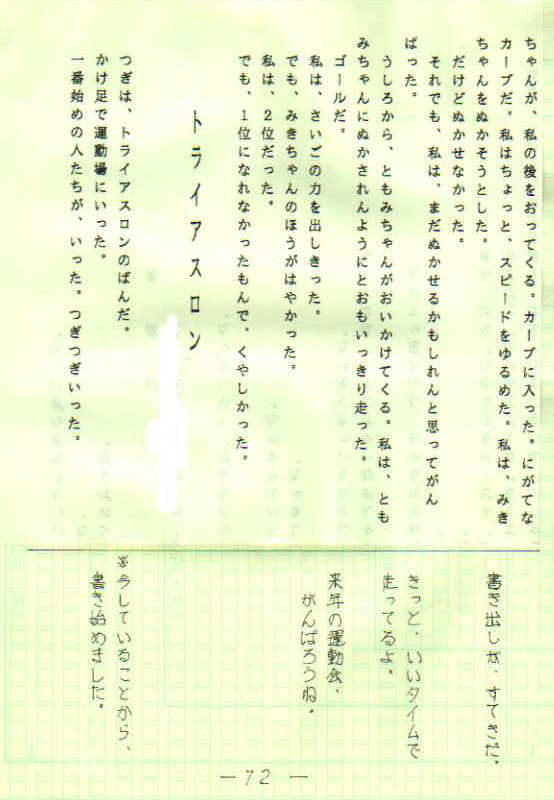 ちゃんが、私の後をおってくる。カーブに入った。にがてな
カーブだ。私はちょっと、スピードをゆるめた。私は、みき
ちゃんをぬかそうとした。
だけどぬかせなかった。
それでも、私は、まだぬかせるかもしれんと思ってがん
ばった。
うしろから、ともみちゃんがおいかけてくる。私は、とも
みちゃんにぬかされんようにとおもいっきり走った。
ゴールだ。
私は、さいごの力を出しきった。
でも、みきちゃんのほうがはやかった。
私は、2位だった。
でも、1位になれなかったもんで、くやしかった。
トライアスロン
つぎは、トライアスロンのばんだ。
かけ足で運動場にいった。
一番始めの人たちが、いった。つぎつぎいった。
書き出しが、すてきだ。
きっと、いいタイムで
走ってるよ。
来年の運動会、
がんばろうね。
※今していることから、
書き始めました。
－72－